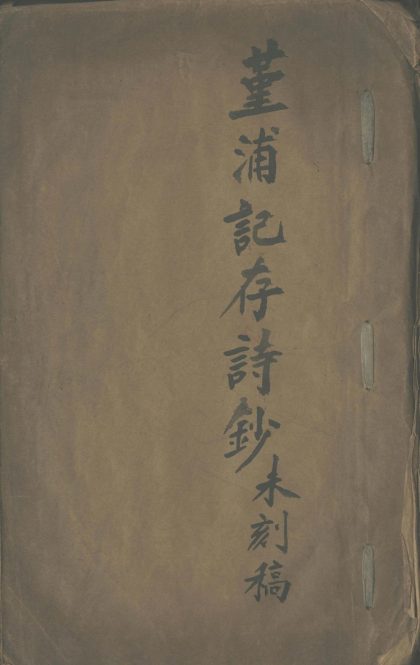 堇浦記存詩鈔未刻稿